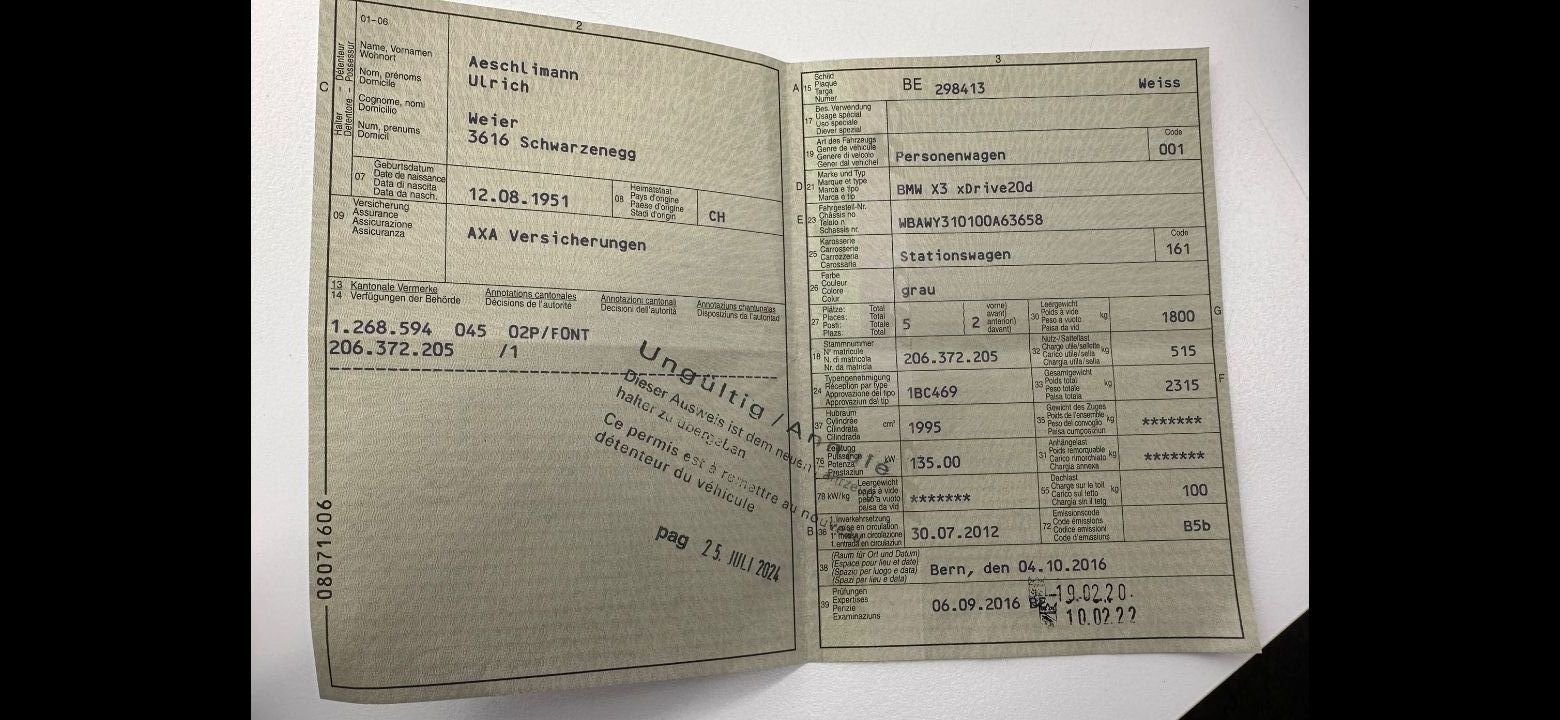 2
01-06
C
Halter - Détenteur
Detentore - Possessur
Name, Vornamen
Wohnort
Nom, prénoms
Domicile
Cognome, nomi
Domicilio
Num, prenums
Domicil
Aeschlimann
Ulrich
Weier
3616 Schwarzenegg
07
Geburtsdatum
Date de naissance
Data di nascita
Data da nasch.
12.08.1951
08
Heimatstaat
Pays d'origine
Paese d'origine
Stadi d'origin
CH
09
Versicherung
Assurance
Assicurazione
Assicuranza
AXA Versicherungen
13 Kantonale Vermerke
14 Verfügungen der Behörde
Annotations cantonales
Décisions de l'autorité
Annotazioni cantonali
Decisioni dell'autorità
Annotaziuns chantunalas
Disposiziuns da l'autoritad
1.268.594 045 02P/FONT
206.372.205 /1
Ungültig / Annulé
Dieser Ausweis ist dem neuen
halter zu übergeben
Ce permis est à remettre au nouveau
détenteur du véhicule
pag 25. JULI 2024
08071606
3
A 15
Schild
Plaque
Targa
Numer
BE 298413 Weiss
17
Bes. Verwendung
Usage spécial
Uso speciale
Diever spezial
19
Art des Fahrzeugs
Genre de véhicule
Genere di veicolo
Gener dal vehichel
Personenwagen
Code
001
D 21
Marke und Typ
Marque et type
Marca e tipo
Marca e tip
BMW X3 xDrive20d
E 23
Fahrgestell-Nr.
Châssis no
Telaio n.
Schassis nr.
WBAWY310100A63658
25
Karosserie
Carrosserie
Carrozzeria
Carossaria
Stationswagen
Code
161
26
Farbe
Couleur
Colore
Colur
grau
27
Plätze: Total
Places: Total
Posti: Totale
Plazs: Total
5
2
vorne)
avant)
anteriori)
davant)
30
Leergewicht
Poids à vide
Peso a vuoto
Paisa da vid
kg
1800
G
18
Stammnummer
N° matricule
N. di matricola
Nr. da matricla
206.372.205
32
Nutz-/Sattellast
Charge utile/sellette
Carico utile/sella
Chargia utila/sella
kg
515
24
Typengenehmigung
Réception par type
Approvazione del tipo
Approvaziun dal tip
1BC469
33
Gesamtgewicht
Poids total
Peso totale
Paisa totala
kg
2315
F
37
Hubraum
Cylindrée
Cilindrata
Cilindrada
cm³
1995
35
Gewicht des Zuges
Poids de l'ensemble
Peso del convoglio
Paisa cumposiziun
kg
*******
76
Leistung
Puissance
Potenza
Prestaziun
kW
135.00
31
Anhängelast
Poids remorquable
Carico rimorchiato
Chargia annexa
kg
*******
78 kW/kg
Leergewicht
poids à vide
peso a vuoto
paisa da vid
*******
55
Dachlast
Charge sur le toit
Carico sul tetto
Chargia sin il tetg
kg
100
B 36
1. Inverkehrsetzung
1re mise en circulation
1a messa in circolazione
1. entrada en circulaziun
30.07.2012
72
Emissionscode
Code émissions
Codice emissioni
Code d'emissiuns
B5b
38
(Raum für Ort und Datum)
(Espace pour lieu et date)
(Spazio per luogo e data)
(Spazi per lieu e data)
Bern, den 04.10.2016
39
Prüfungen
Expertises
Perizie
Examinaziuns
06.09.2016 BE
19.02.20.
10.02.22